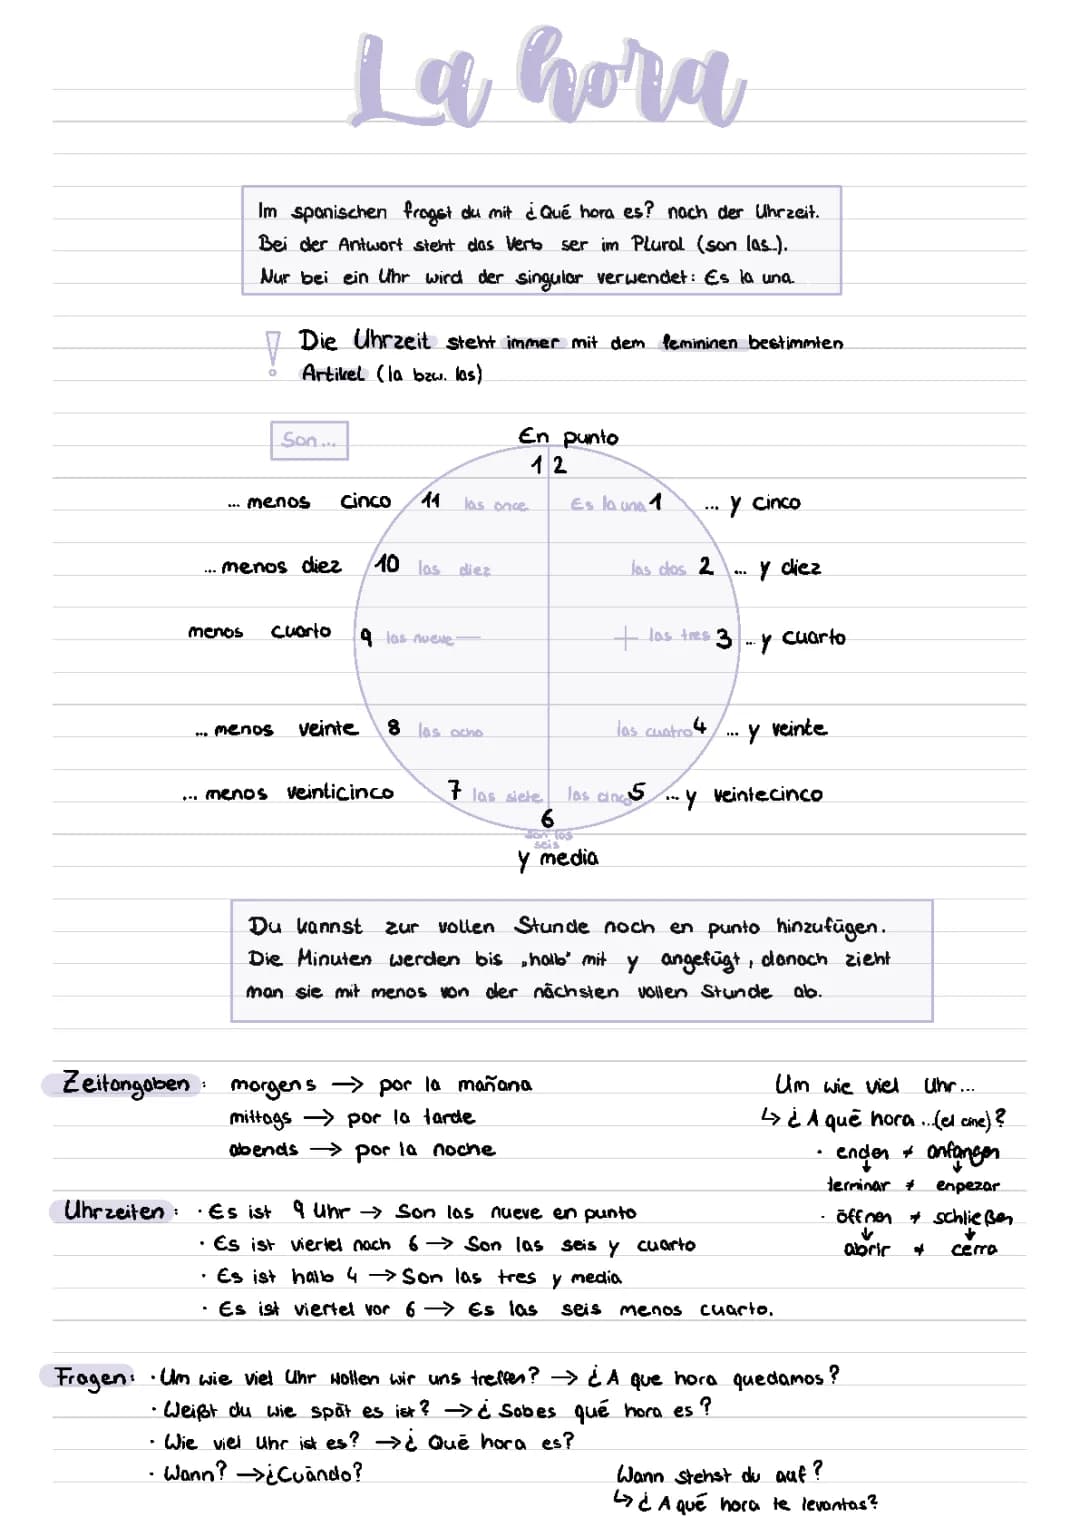 La hora
Im spanischen fragst du mit ¿Qué hora es? nach der Uhrzeit.
Bei der Antwort steht das Verb ser im Plural (son las..).
Nur bei ein Uhr wird der singular verwendet: Es la una.
! Die Uhrzeit steht immer mit dem femininen bestimmten
Artikel (la bzw. las)
Son...
En punto
12
... menos cinco 11 las once Es la una 1 ... y cinco
... menos diez 10 las diez las dos 2 ... y diez
menos cuarto 9 las nueve — + las tres 3 ... y cuarto
... menos veinte 8 las ocho las cuatro 4 ... y veinte
... menos veinticinco 7 las siete las cinco 5 ... y veintecinco
6
Son las
seis
y media
Du kannst zur vollen Stunde noch en punto hinzufügen.
Die Minuten werden bis „halb" mit y angefügt, danach zieht
man sie mit menos von der nächsten vollen Stunde ab.
Zeitangaben: morgens → por la mañana
mittags → por la tarde
abends → por la noche
Um wie viel Uhr...
↳ ¿A qué hora ...(el cine)?
· enden ≠ anfangen
↓ ↓
terminar ≠ enpezar
· öffnen ≠ schließen
↓ ↓
abrir ≠ cerra
Uhrzeiten: · Es ist 9 Uhr → Son las nueve en punto
· Es ist viertel nach 6 → Son las seis y cuarto
· Es ist halb 4 → Son las tres y media
· Es ist viertel vor 6 → Es las seis menos cuarto.
Fragen: · Um wie viel Uhr wollen wir uns treffen? → ¿A que hora quedamos?
· Weißt du wie spät es ist? → ¿Sabes qué hora es?
· Wie viel Uhr ist es? → ¿Qué hora es?
· Wann? → ¿Cuándo?
Wann stehst du auf?
↳ ¿A qué hora te levantas?